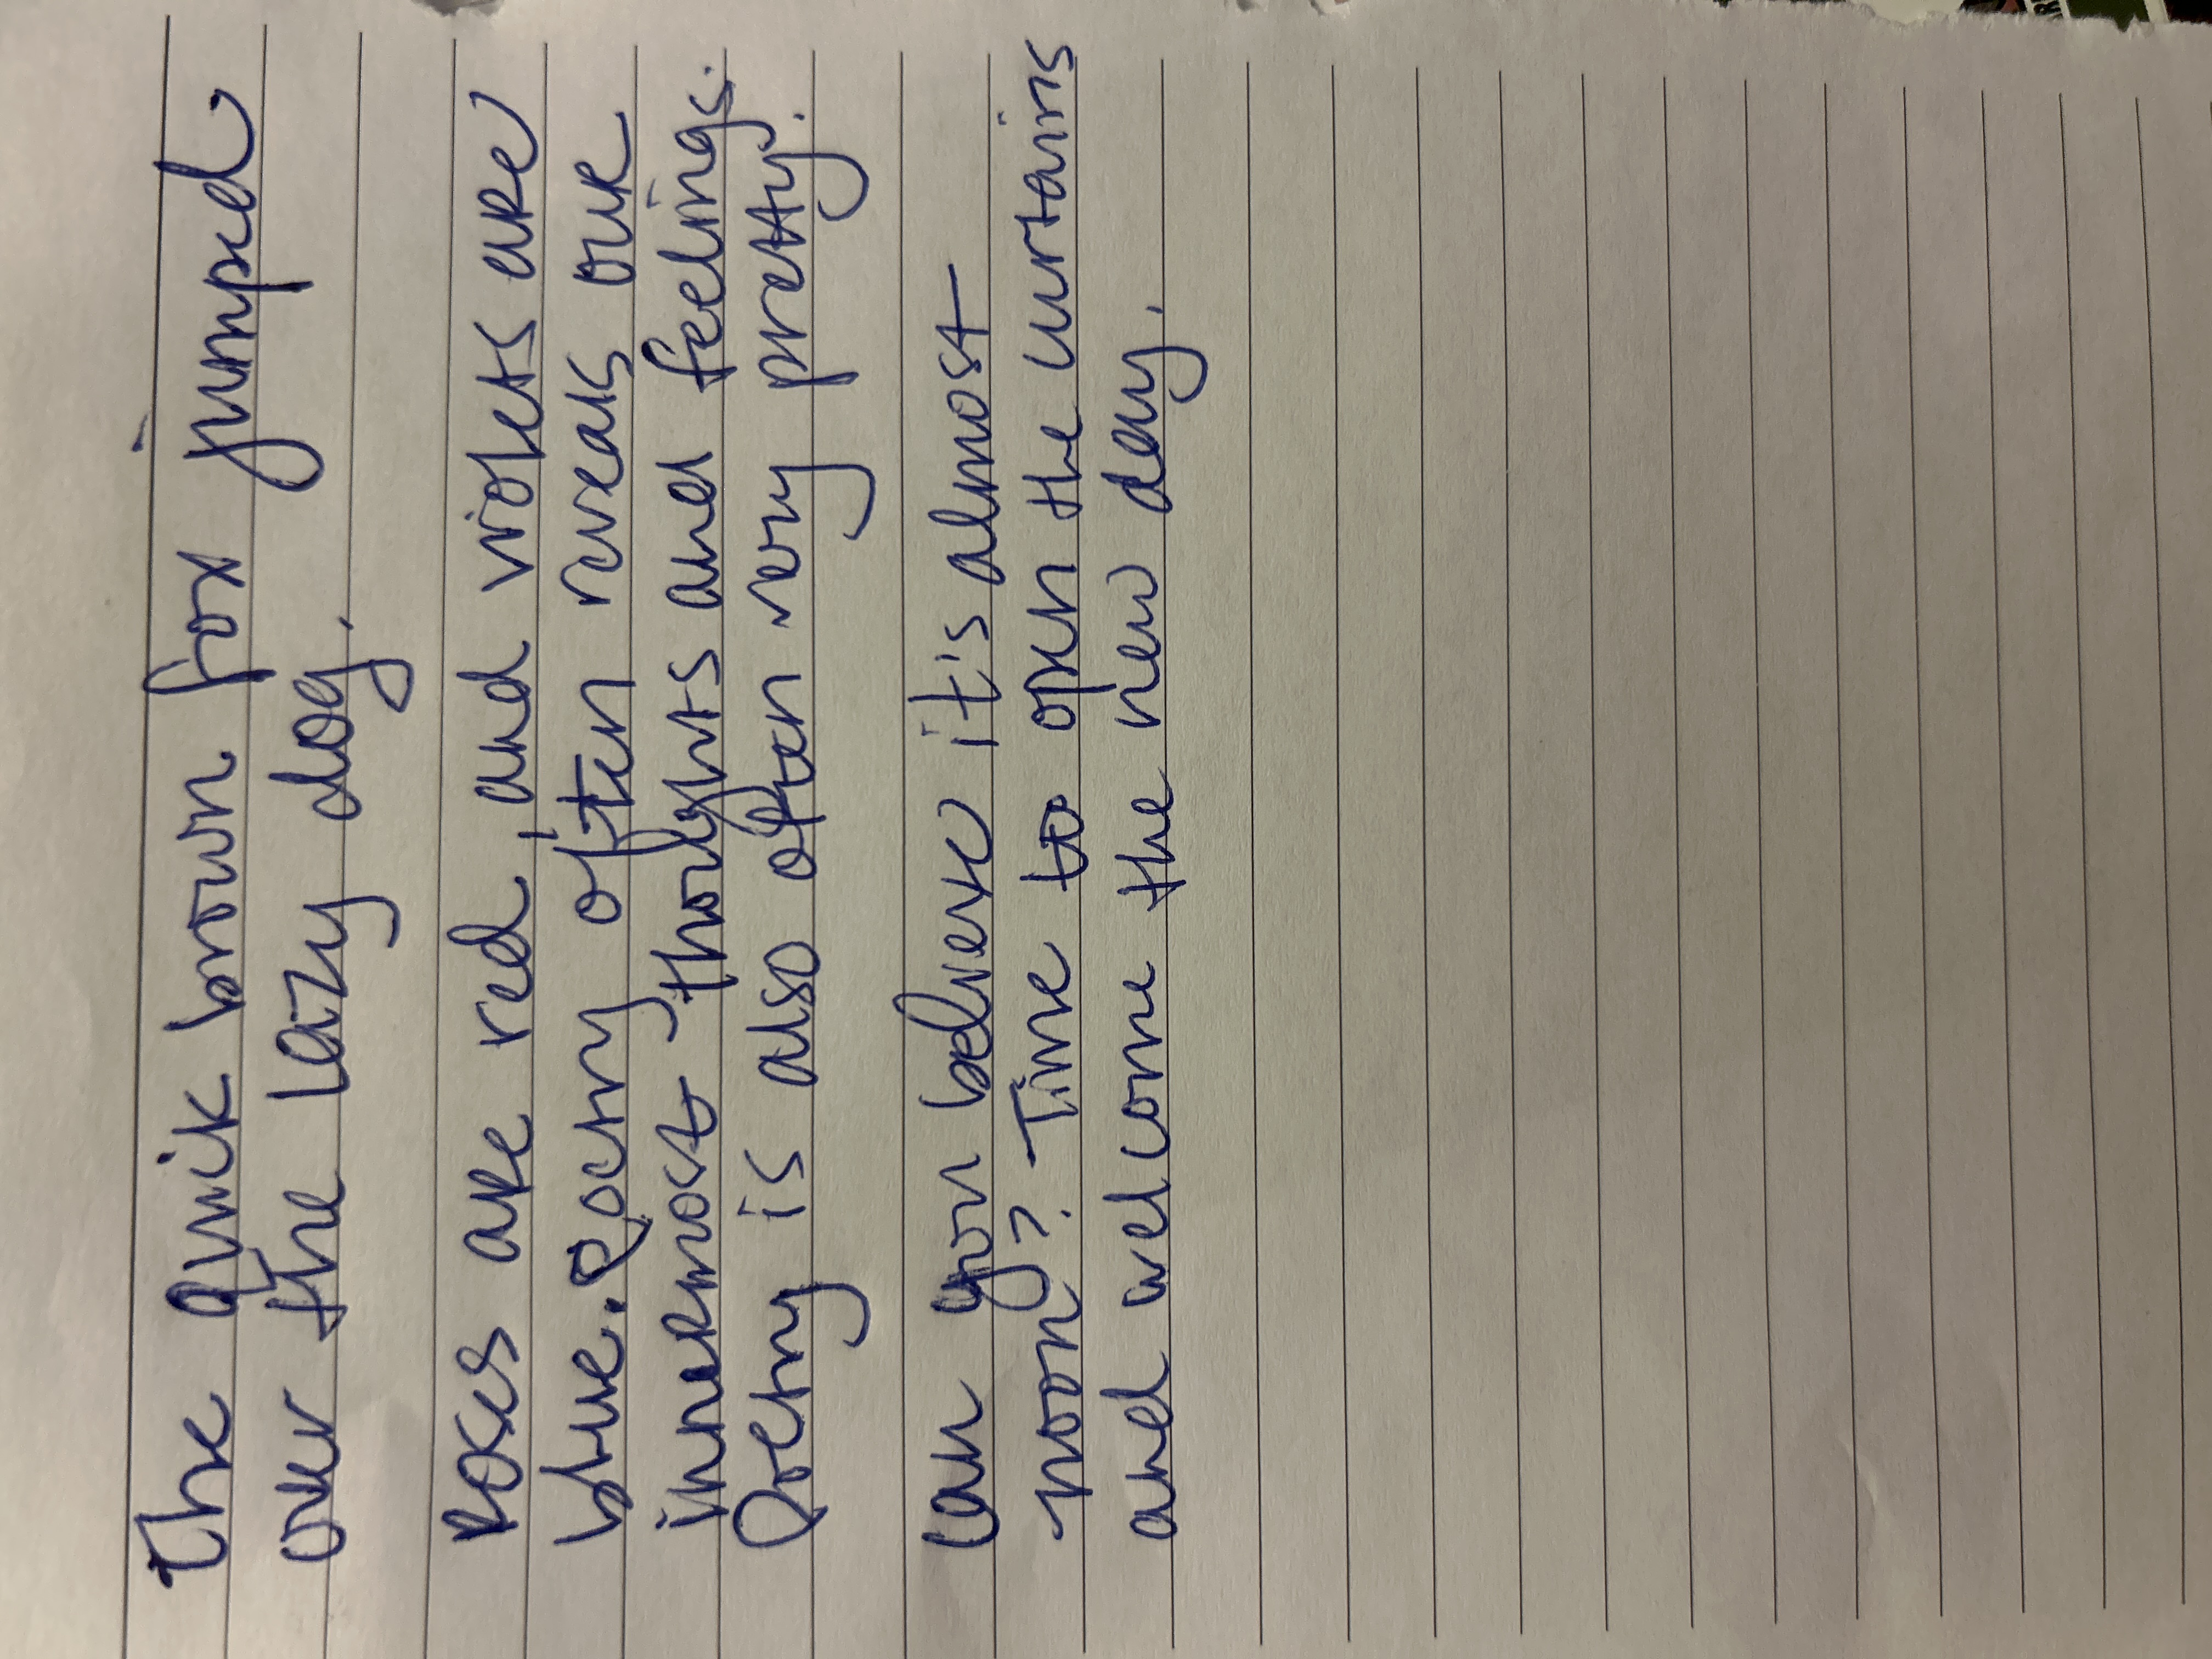 The quick brown fox jumped
over the lazy dog.
Roses are red, and violets are
blue. Poetry often reveals our
innermost thoughts and feelings.
Poetry is also often very pretty.
Can you believe it's almost
noon? Time to open the curtains
and welcome the new day.